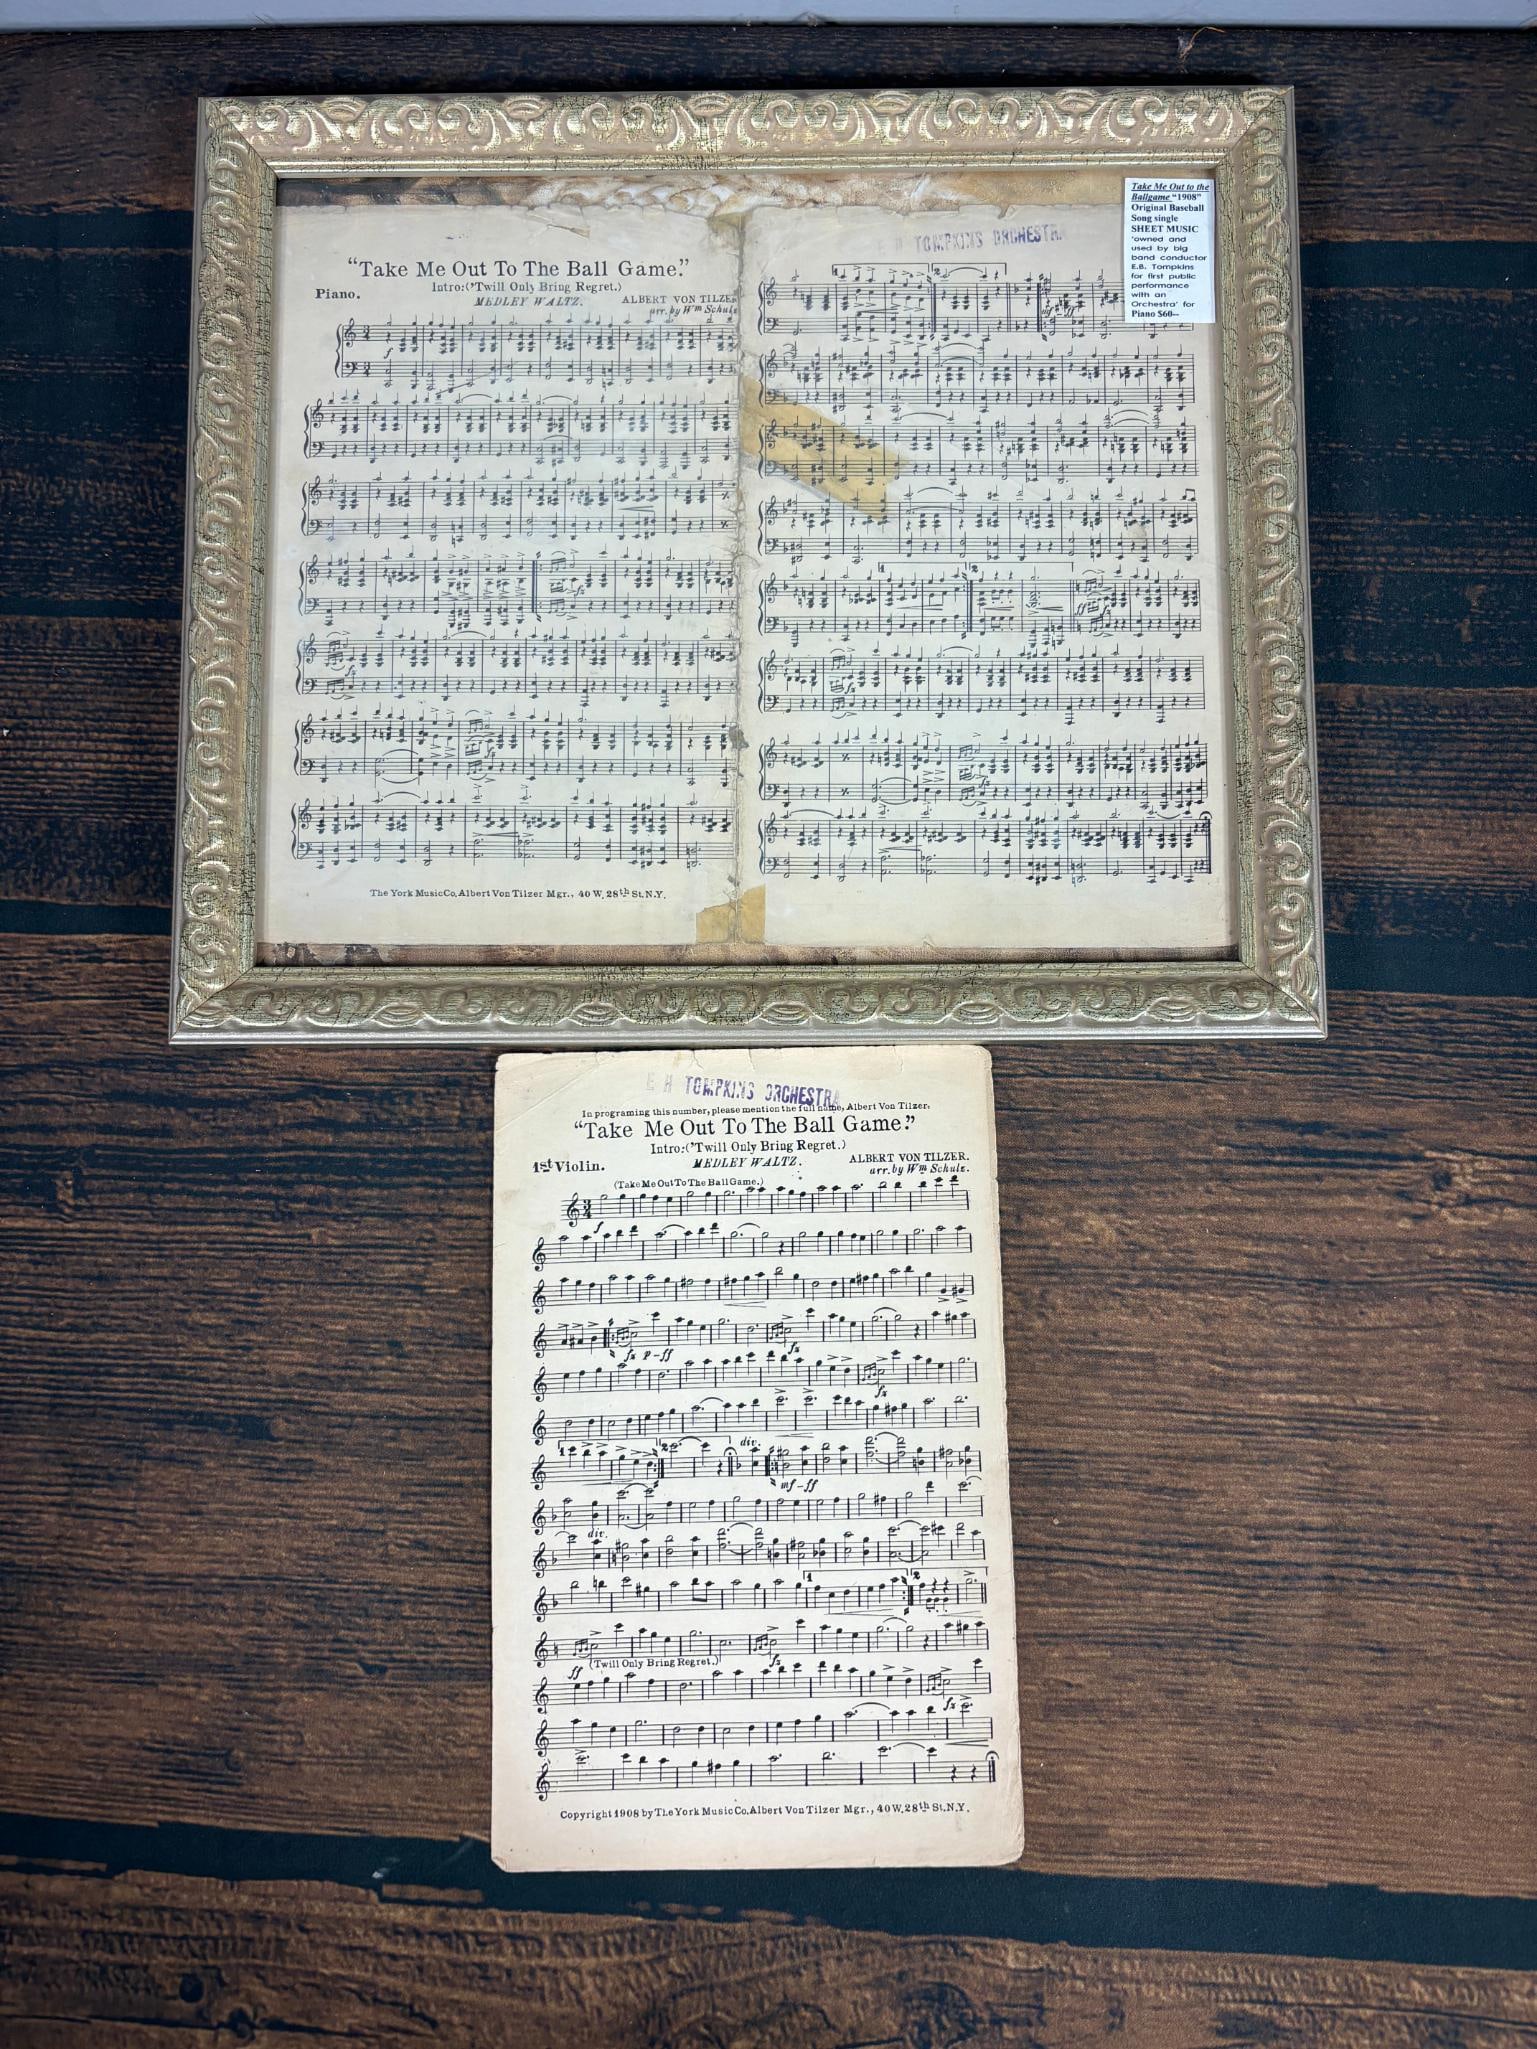 "Take Me Out To The Ball Game."
Intro:('Twill Only Bring Regret.)
Piano.
MEDLEY WALTZ.
ALBERT VON TILZER
arr. by Wm Schulz
f
The York Music Co. Albert Von Tilzer Mgr., 40 W. 28th St. N.Y.
TOMPKINS ORCHESTRA
1
2
1
2
ff
Take Me Out to the
Ballgame "1908"
Original Baseball
Song single
SHEET MUSIC
'owned and
used by big
band conductor
E.B. Tompkins
for first public
performance
with an
Orchestra' for
Piano $60--
E H TOMPKINS ORCHESTRA
In programing this number, please mention the full name, Albert Von Tilzer.
"Take Me Out To The Ball Game."
Intro:('Twill Only Bring Regret.)
1st Violin.
MEDLEY WALTZ.
ALBERT VON TILZER.
arr. by Wm Schulz.
(Take Me Out To The Ball Game.)
f
fz p-ff
fz
fz
1
2
div.
mf-ff
div.
1
2
ff
('Twill Only Bring Regret.)
fz
fz
Copyright 1908 by The York Music Co. Albert Von Tilzer Mgr., 40 W. 28th St. N.Y.